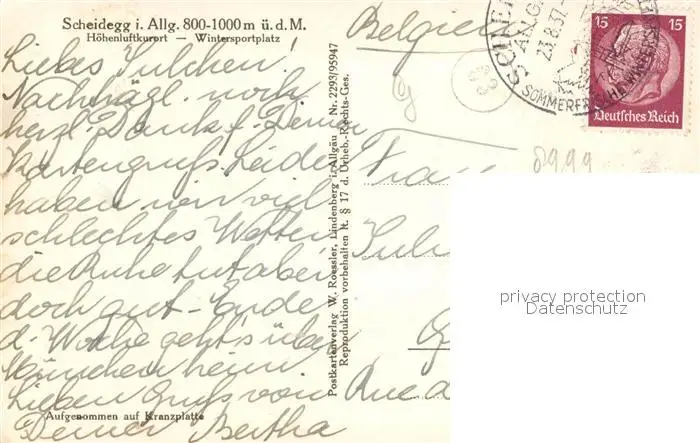 Scheidegg i. Allg. 800-1000 m ü. d. M.
Höhenluftkurort — Wintersportplatz
Liebes Julchen!
Nachträgl. noch
herzl. Dank f. Deinen
Kartengruß. Leider
haben wir viel
schlechtes Wetter,
die Ruhe tut aber
doch gut - Ende
d. Woche geht's über
München heim.
Lieben Gruß von
Deiner Bertha
Aufgenommen auf Kranzplatte
Postkartenverlag W. Roessler, Lindenberg i. Allgäu Nr. 2293/95947
Reproduktion vorbehalten lt. § 17 d. Urheb.-Rechts-Ges.
Belgien
23.8.37
SOMMERFRISCHE
15 15
Deutsches Reich
8999
Frau
Rue d
privacy protection
Datenschutz